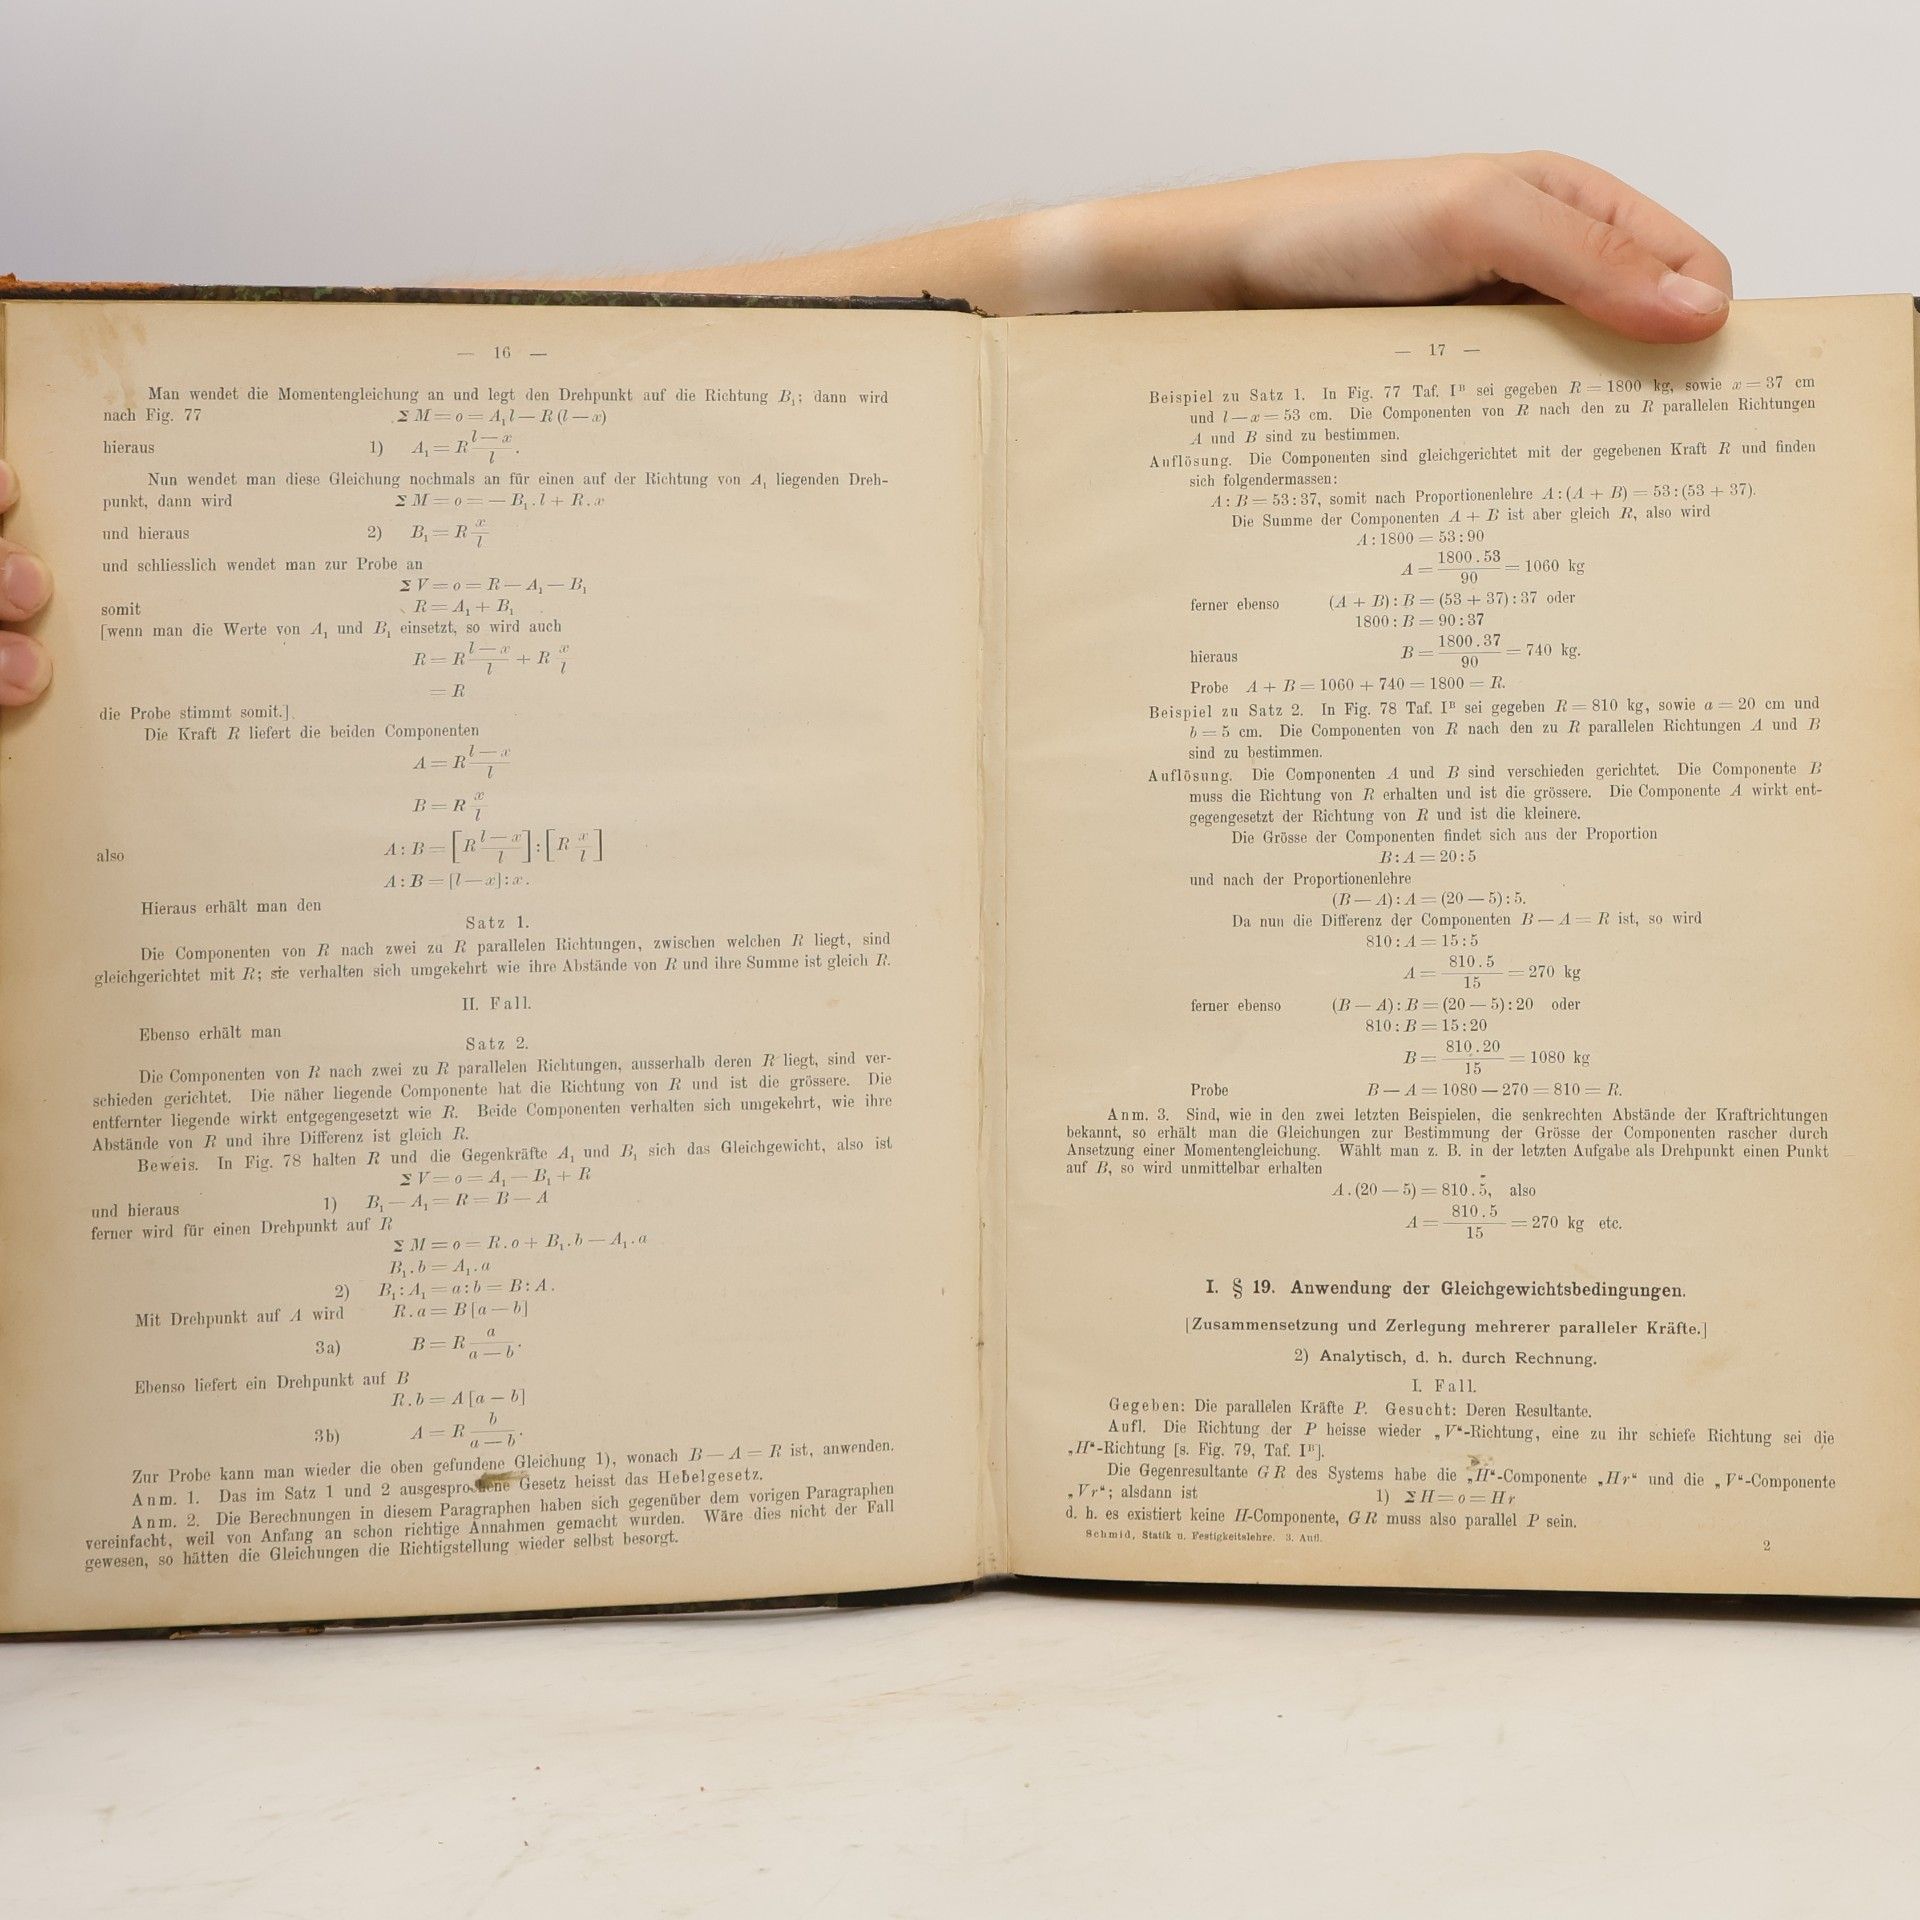 — 16 —
Man wendet die Momentengleichung an und legt den Drehpunkt auf die Richtung B₁; dann wird
nach Fig. 77 Σ M = o = A₁ l — R (l — x)
hieraus 1) A₁ = R (l — x)/l .
Nun wendet man diese Gleichung nochmals an für einen auf der Richtung von A₁ liegenden Dreh-
punkt, dann wird Σ M = o = — B₁ . l + R . x
und hieraus 2) B₁ = R x/l
und schliesslich wendet man zur Probe an
Σ V = o = R — A₁ — B₁
somit R = A₁ + B₁
[wenn man die Werte von A₁ und B₁ einsetzt, so wird auch
R = R (l — x)/l + R x/l
= R
die Probe stimmt somit.]
Die Kraft R liefert die beiden Componenten
A = R (l — x)/l
B = R x/l
also A : B = [R (l — x)/l] : [R x/l]
A : B = [l — x] : x .
Hieraus erhält man den
Satz 1.
Die Componenten von R nach zwei zu R parallelen Richtungen, zwischen welchen R liegt, sind
gleichgerichtet mit R; sie verhalten sich umgekehrt wie ihre Abstände von R und ihre Summe ist gleich R.
II. Fall.
Ebenso erhält man
Satz 2.
Die Componenten von R nach zwei zu R parallelen Richtungen, ausserhalb deren R liegt, sind ver-
schieden gerichtet. Die näher liegende Componente hat die Richtung von R und ist die grössere. Die
entfernter liegende wirkt entgegengesetzt wie R. Beide Componenten verhalten sich umgekehrt, wie ihre
Abstände von R und ihre Differenz ist gleich R.
Beweis. In Fig. 78 halten R und die Gegenkräfte A₁ und B₁ sich das Gleichgewicht, also ist
Σ V = o = A₁ — B₁ + R
und hieraus 1) B₁ — A₁ = R = B — A
ferner wird für einen Drehpunkt auf R
Σ M = o = R . o + B₁ . b — A₁ . a
B₁ . b = A₁ . a
2) B₁ : A₁ = a : b = B : A .
Mit Drehpunkt auf A wird R . a = B [a — b]
3a) B = R a/(a — b) .
Ebenso liefert ein Drehpunkt auf B
R . b = A [a — b]
3b) A = R b/(a — b) .
Zur Probe kann man wieder die oben gefundene Gleichung 1), wonach B — A = R ist, anwenden.
Anm. 1. Das im Satz 1 und 2 ausgesprochene Gesetz heisst das Hebelgesetz.
Anm. 2. Die Berechnungen in diesem Paragraphen haben sich gegenüber dem vorigen Paragraphen
vereinfacht, weil von Anfang an schon richtige Annahmen gemacht wurden. Wäre dies nicht der Fall
gewesen, so hätten die Gleichungen die Richtigstellung wieder selbst besorgt.
— 17 —
Beispiel zu Satz 1. In Fig. 77 Taf. Iᴮ sei gegeben R = 1800 kg, sowie x = 37 cm
und l — x = 53 cm. Die Componenten von R nach den zu R parallelen Richtungen
A und B sind zu bestimmen.
Auflösung. Die Componenten sind gleichgerichtet mit der gegebenen Kraft R und finden
sich folgendermassen:
A : B = 53 : 37, somit nach Proportionenlehre A : (A + B) = 53 : (53 + 37).
Die Summe der Componenten A + B ist aber gleich R, also wird
A : 1800 = 53 : 90
A = 1800 . 53/90 = 1060 kg
ferner ebenso (A + B) : B = (53 + 37) : 37 oder
1800 : B = 90 : 37
hieraus B = 1800 . 37/90 = 740 kg.
Probe A + B = 1060 + 740 = 1800 = R.
Beispiel zu Satz 2. In Fig. 78 Taf. Iᴮ sei gegeben R = 810 kg, sowie a = 20 cm und
b = 5 cm. Die Componenten von R nach den zu R parallelen Richtungen A und B
sind zu bestimmen.
Auflösung. Die Componenten A und B sind verschieden gerichtet. Die Componente B
muss die Richtung von R erhalten und ist die grössere. Die Componente A wirkt ent-
gegengesetzt der Richtung von R und ist die kleinere.
Die Grösse der Componenten findet sich aus der Proportion
B : A = 20 : 5
und nach der Proportionenlehre
(B — A) : A = (20 — 5) : 5.
Da nun die Differenz der Componenten B — A = R ist, so wird
810 : A = 15 : 5
A = 810 . 5/15 = 270 kg
ferner ebenso (B — A) : B = (20 — 5) : 20 oder
810 : B = 15 : 20
B = 810 . 20/15 = 1080 kg
Probe B — A = 1080 — 270 = 810 = R.
Anm. 3. Sind, wie in den zwei letzten Beispielen, die senkrechten Abstände der Kraftrichtungen
bekannt, so erhält man die Gleichungen zur Bestimmung der Grösse der Componenten rascher durch
Ansetzung einer Momentengleichung. Wählt man z. B. in der letzten Aufgabe als Drehpunkt einen Punkt
auf B, so wird unmittelbar erhalten
A . (20 — 5) = 810 . 5, also
A = 810 . 5/15 = 270 kg etc.
I. § 19. Anwendung der Gleichgewichtsbedingungen.
[Zusammensetzung und Zerlegung mehrerer paralleler Kräfte.]
2) Analytisch, d. h. durch Rechnung.
I. Fall.
Gegeben: Die parallelen Kräfte P. Gesucht: Deren Resultante.
Aufl. Die Richtung der P heisse wieder „V“-Richtung, eine zu ihr schiefe Richtung sei die
„H“-Richtung [s. Fig. 79, Taf. Iᴮ].
Die Gegenresultante GR des Systems habe die „H“-Componente „Hr“ und die „V“-Componente
„Vr“; alsdann ist 1) Σ H = o = Hr
d. h. es existiert keine H-Componente, GR muss also parallel P sein.
Schmid, Statik u. Festigkeitslehre. 3. Aufl.
2